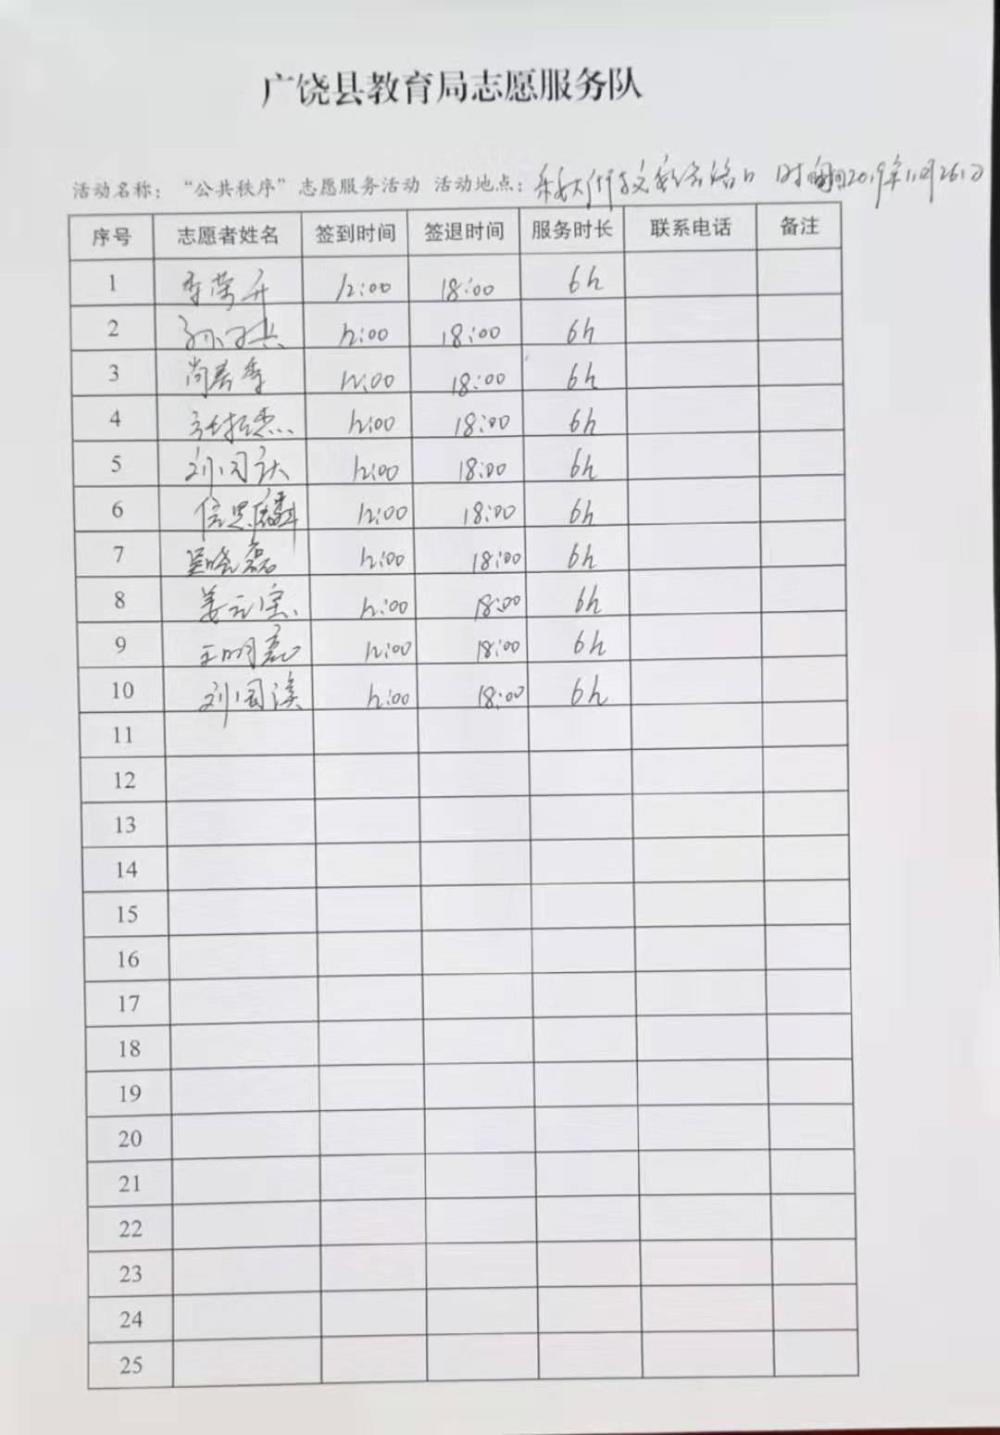 广饶县教育局志愿服务队
活动名称：“公共秩序”志愿服务活动 活动地点： 路口 时间2019年11月26日
序号 志愿者姓名 签到时间 签退时间 服务时长 联系电话 备注
1 李荣升 12:00 18:00 6h
2 12:00 18:00 6h
3 尚春季 12:00 18:00 6h
4 12:00 18:00 6h
5 12:00 18:00 6h
6 信思麟 12:00 18:00 6h
7 晓磊 12:00 18:00 6h
8 姜元宝 12:00 18:00 6h
9 王明亮 12:00 18:00 6h
10 刘国溪 12:00 18:00 6h
11
12
13
14
15
16
17
18
19
20
21
22
23
24
25